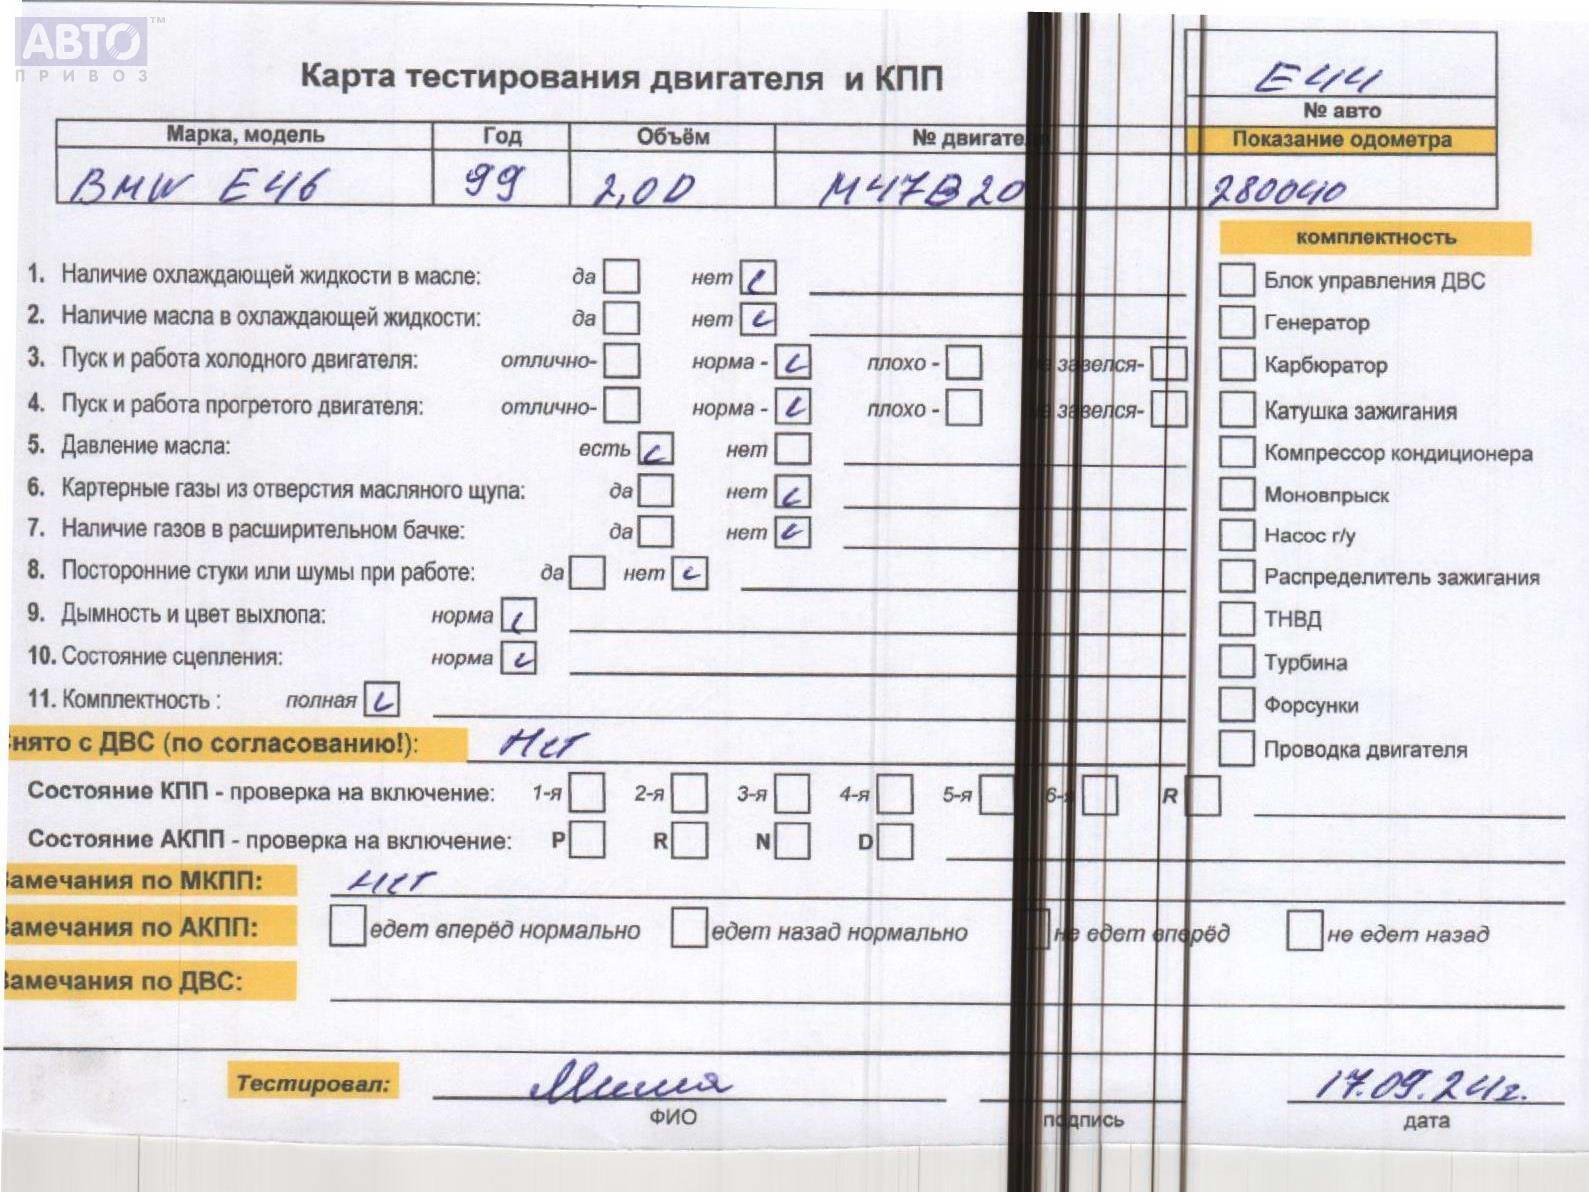 АВТО™
ПРИВОЗ
Карта тестирования двигателя и КПП
E44
№ авто
Марка, модель Год Объём № двигате Показание одометра
BMW E46 99 2,0D M47B20 280040
комплектность
1. Наличие охлаждающей жидкости в масле: да нет
Блок управления ДВС
2. Наличие масла в охлаждающей жидкости: да нет
Генератор
3. Пуск и работа холодного двигателя: отлично- норма - плохо - завелся-
Карбюратор
4. Пуск и работа прогретого двигателя: отлично- норма - плохо - завелся-
Катушка зажигания
5. Давление масла: есть нет
Компрессор кондиционера
6. Картерные газы из отверстия масляного щупа: да нет
Моновпрыск
7. Наличие газов в расширительном бачке: да нет
Насос г/у
8. Посторонние стуки или шумы при работе: да нет
Распределитель зажигания
9. Дымность и цвет выхлопа: норма
ТНВД
10. Состояние сцепления: норма
Турбина
11. Комплектность : полная
Форсунки
нято с ДВС (по согласованию!): Нет
Проводка двигателя
Состояние КПП - проверка на включение: 1-я 2-я 3-я 4-я 5-я 6-я R
Состояние АКПП - проверка на включение: P R N D
Замечания по МКПП: Нет
Замечания по АКПП: едет вперёд нормально едет назад нормально не едет вперёд не едет назад
Замечания по ДВС:
Тестировал: 17.09.24г.
ФИО подпись дата